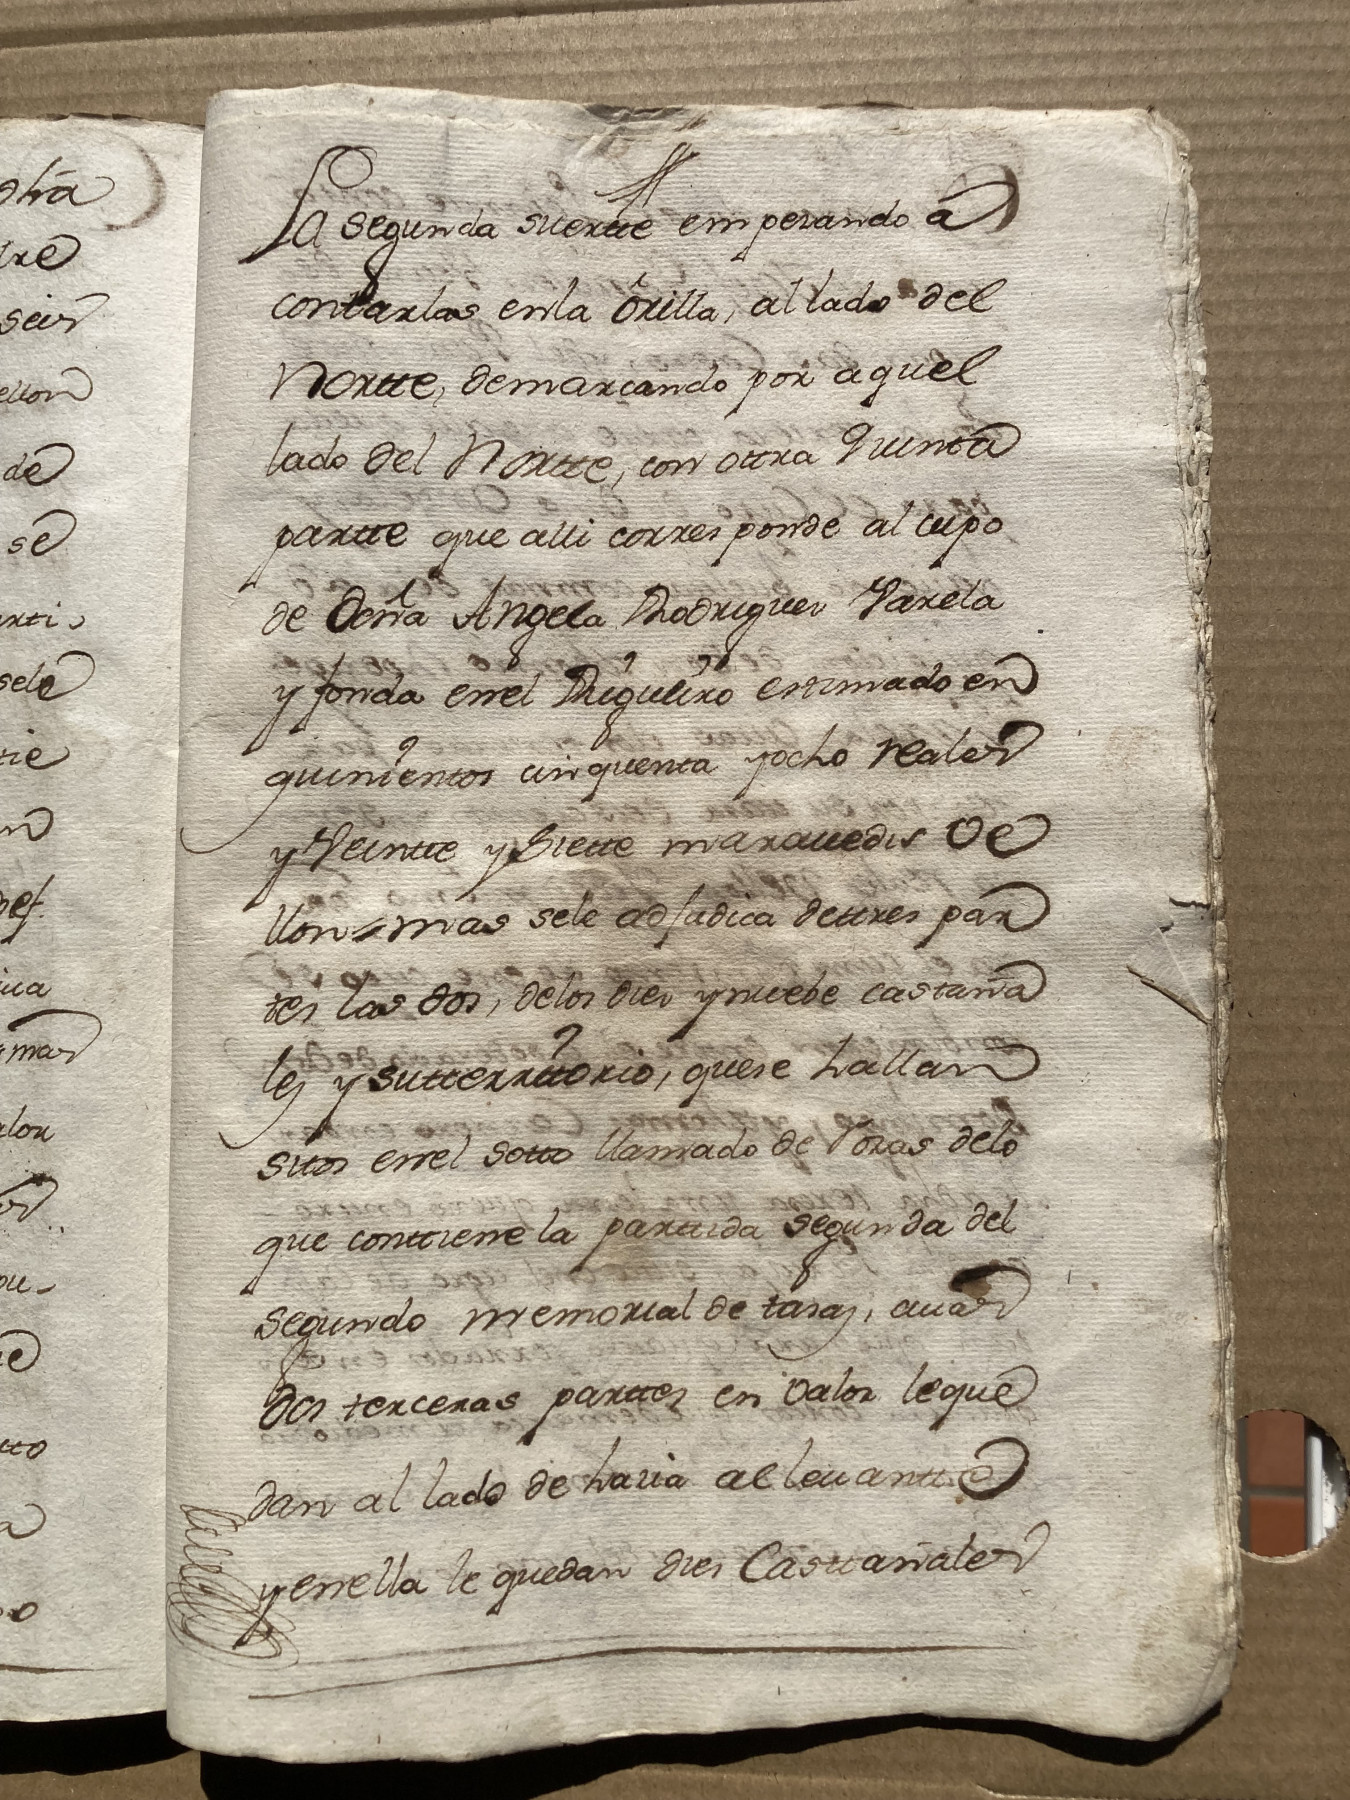 La segunda suertte empezando â
contarlas enla ôrilla, al lado del
Nortte, demarcando por aquel
lado del Nortte, con ottra Quinta
partte que alli corresponde al cupo
de Doña Angela Rodriguez Varela
y fonda enel Rigueiro estimado en
quinientos cinquenta yocho reales
y Veintte y Siette maravedis Ve
llon = mas sele adjudica dettres par
tes las dos, delos diez ynuebe castaña
les y sutterrittorio, quese hallan
sitos enel sotto llamado de Pozas delo
que conttiene la parttida segunda del
segundo memorial de tasas, cuias
dos terceras parttes en valor leque
dan al lado de hazia al levantte
yenella le quedan diez Casttañales
otra
dre
seis
ellon
de
se
arti
sele
tie
n
iua
mas
alor
ou
tto
a
o